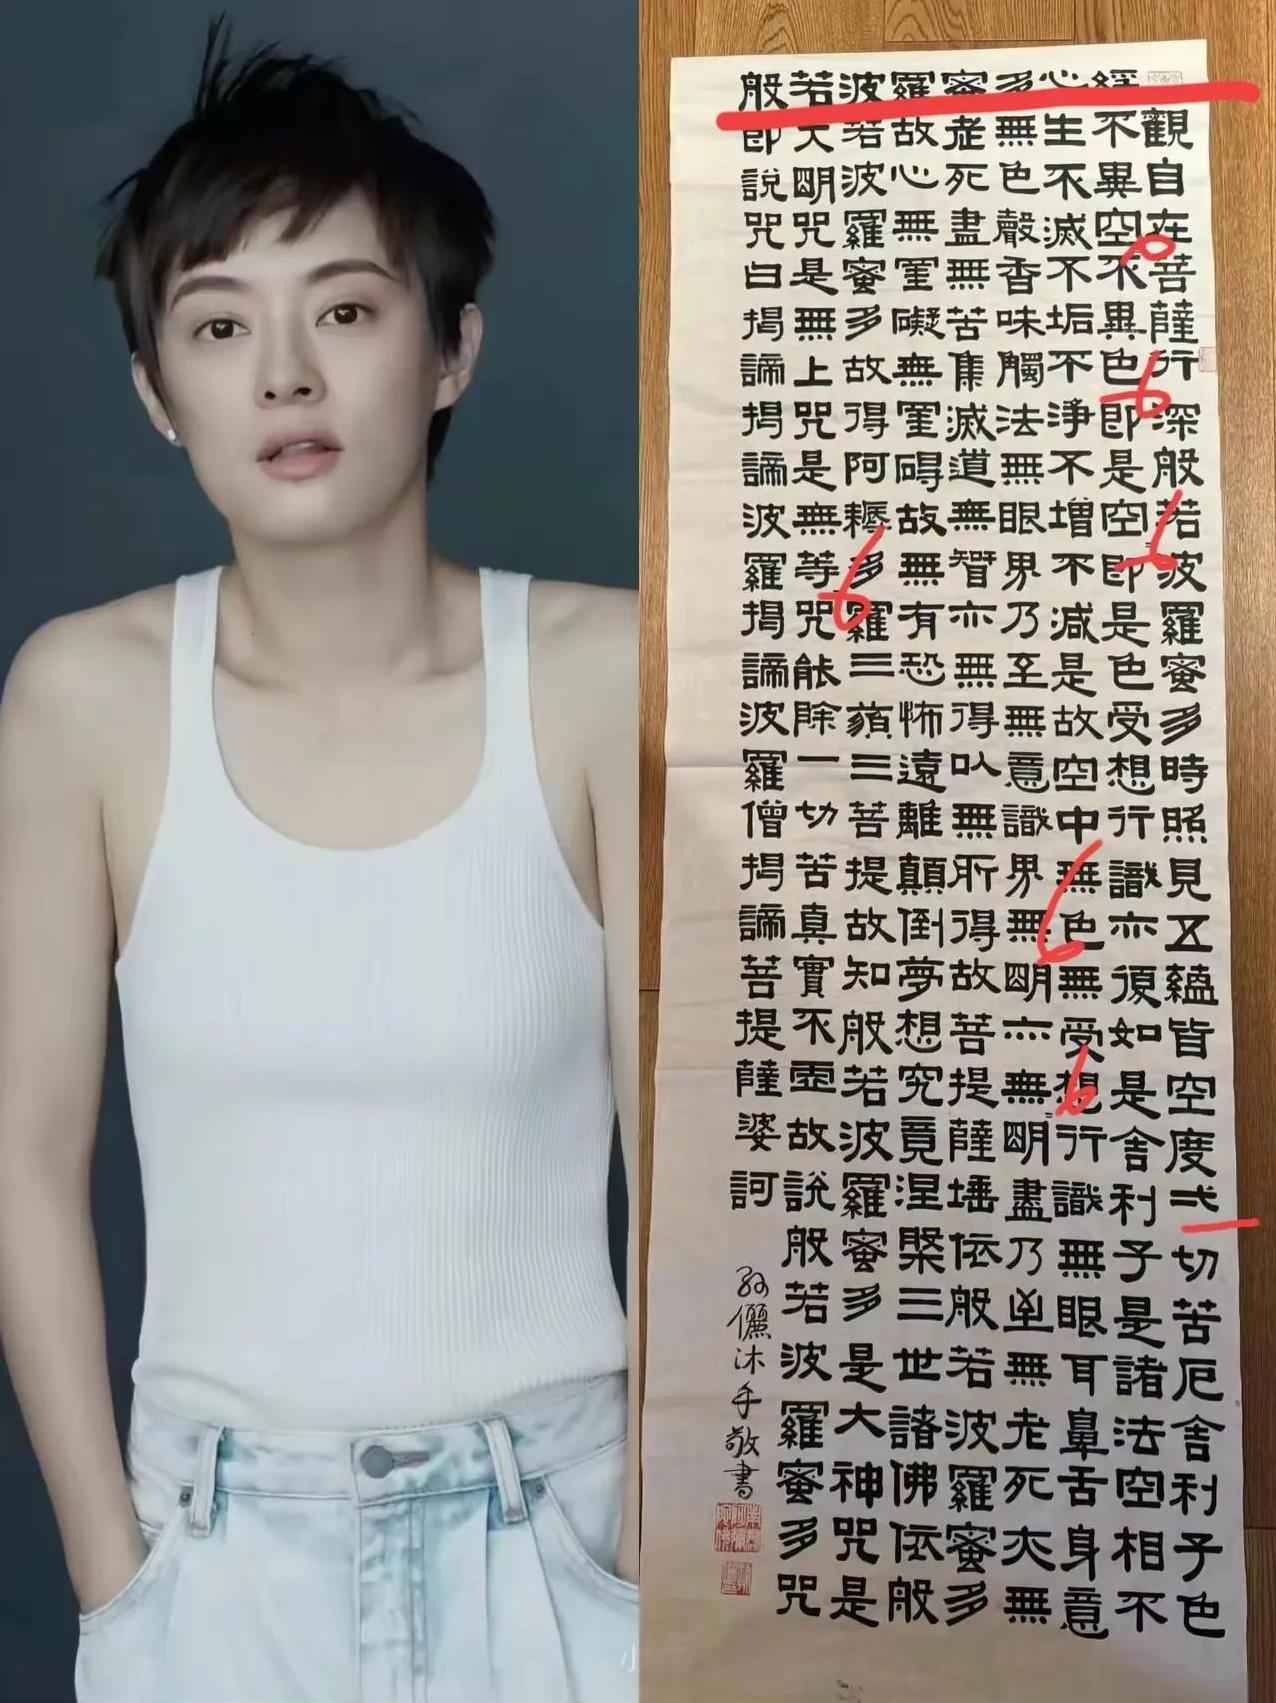 般若波羅蜜多心經
觀自在菩薩行深般若波羅蜜多時照見五蘊皆空度弌切苦厄舍利子色
不異空不異色即是空即是色受想行識亦復如是舍利子是諸法空相不
生不滅不垢不淨不增不減是故空中無色無受想行識無眼耳鼻舌身意
無色聲香味觸法無眼界乃至無意識界無明亦無明盡乃至無老死亦無
老死盡無苦集滅道無智亦無得以無所得故菩提薩埵依般若波羅蜜多
故心無罣礙無罣碍故無有恐怖遠離顛倒夢想究竟涅槃三世諸佛依般
若波羅蜜多故得阿耨多羅三藐三菩提故知般若波羅蜜多是大神咒是
大明咒是無上咒是無等咒能除一切苦真實不虛故說般若波羅蜜多咒
即說咒曰揭諦揭諦波羅揭諦波羅僧揭諦菩提薩婆訶
孫儷沐手敬書
小